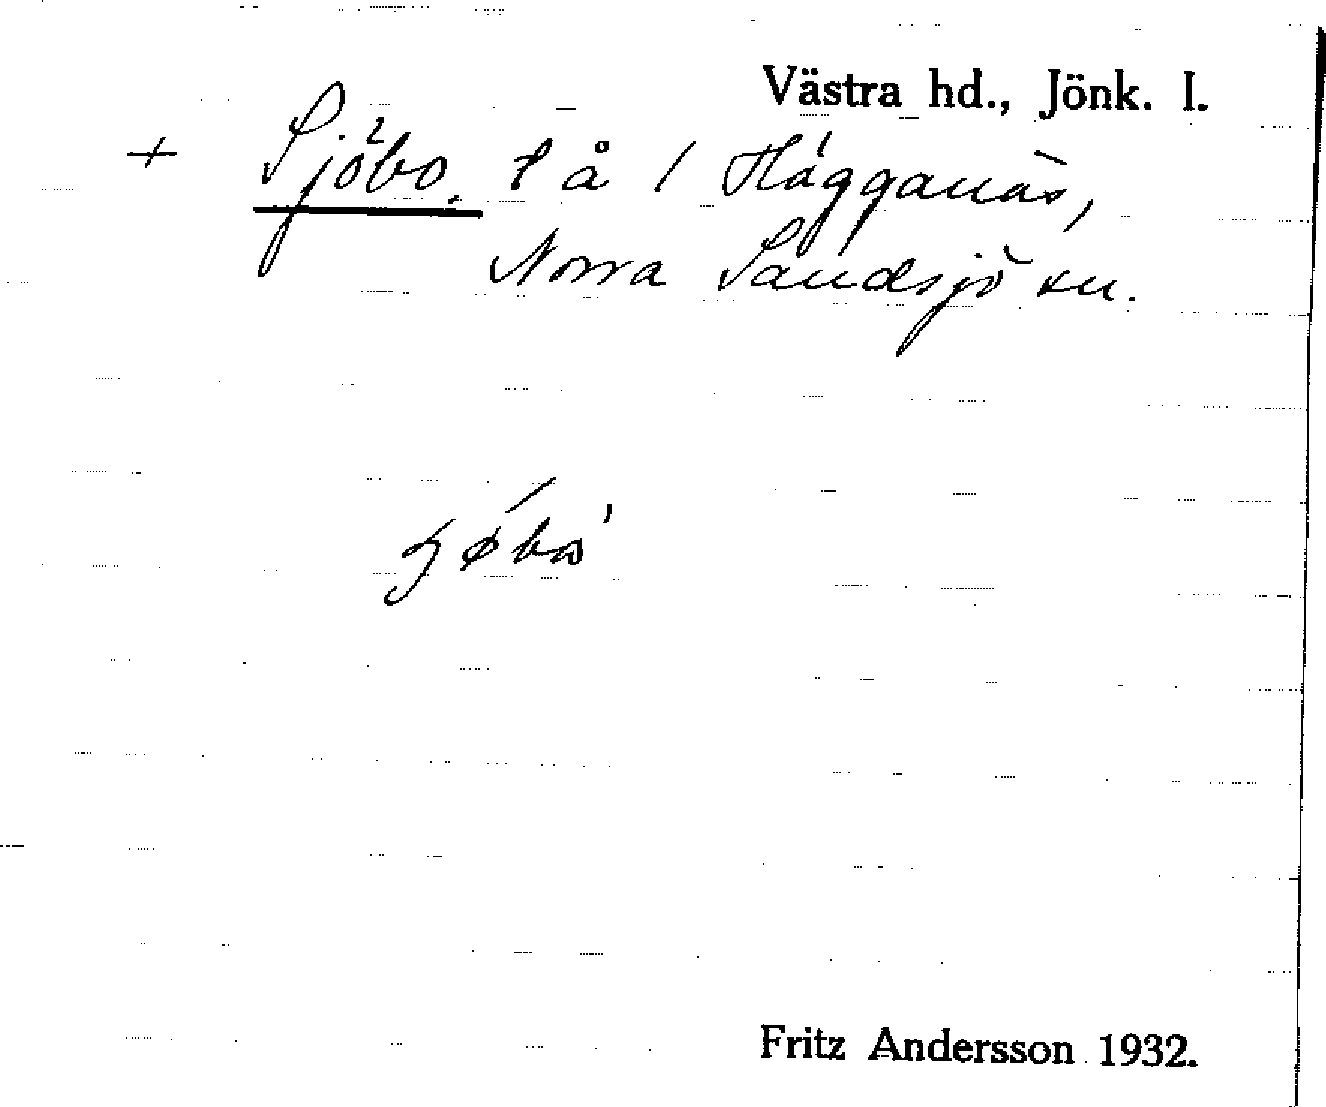 Västra hd., Jönk. l.
+ Sjöbo. t å / Hägganäs,
Norra Sandsjö sn.
Fritz Andersson 1932.